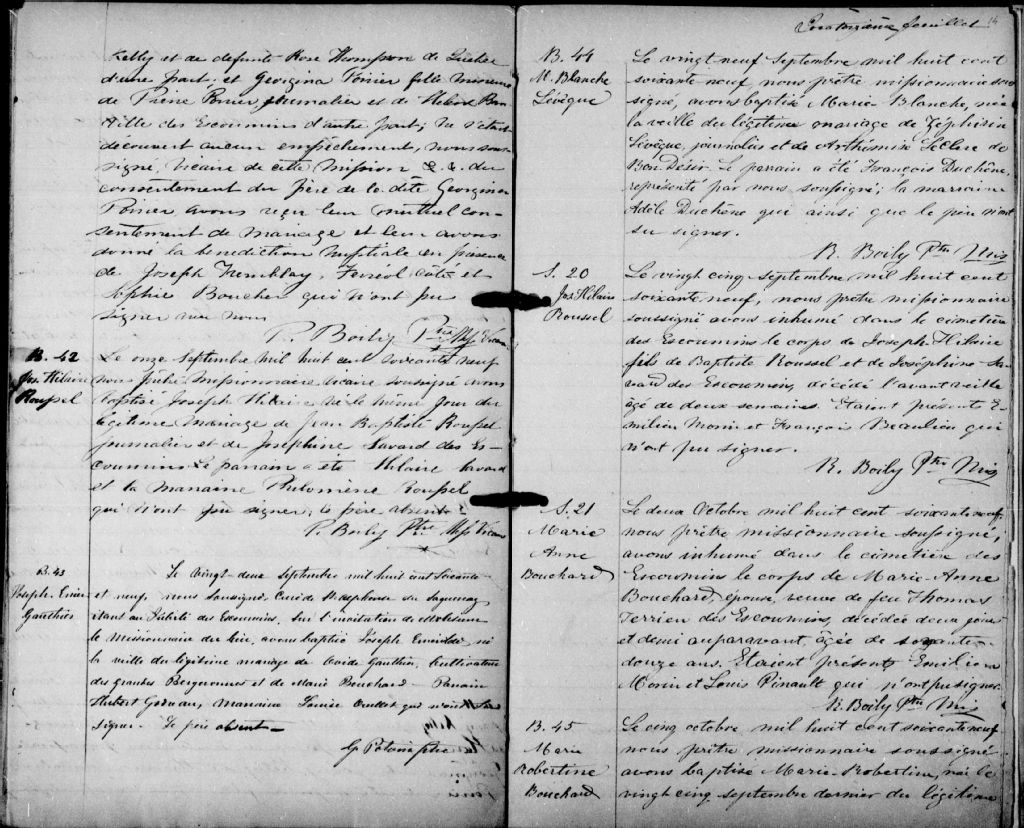 Kelly et de défunte Rose Thompson de Québec
d'une part; et Georgina Poirier fille mineure
de Pierre Poirier journalier et de
des Escoumins d'autre part; ne s'étant
découvert aucun empêchement, nous sous-
signé, vicaire de cette mission &. &. du
consentement du père de la dite Georgina
Poirier avons reçu leur mutuel con-
sentement de mariage et leur avons
donné la bénédiction nuptiale en présence
de Joseph Tremblay, Ferréol Côté et
Sophie Boucher qui n'ont pu
signer avec nous
P. Boily Ptre Miss Vicaire
B. 42
Jos. Hilaire
Roussel
Le onze Septembre mil huit cent soixante neuf
nous prêtre missionnaire vicaire soussigné avons
baptisé Joseph Hilaire né le même jour du
légitime mariage de Jean Baptiste Roussel
journalier et de Josephine Savard des Es-
coumins. Le parrain a été Hilaire Savard
et la marraine Philomène Roussel
qui n'ont pu signer, le père absent
P. Boily Ptre Miss Vicaire
B. 43
Joseph
Gauthier
Le vingt-deux Septembre mil huit cent soixante
et neuf, nous Soussigné Curé de St Alphonse du Saguenay
étant au des Escoumins, sur l'invitation de Monsieur
le Missionnaire du lieu, avons baptisé Joseph né
la veille du légitime mariage de Gauthier, Cultivateur
des grandes Bergeronnes et de Marie Bouchard - Parrain
Hubert marraine Louise qui n'ont su
signer. Le père absent -
G Potvin ptre
Quatorzième feuillet 14
B. 44
M. Blanche
Lévêque
Le vingt neuf Septembre mil huit cent
soixante neuf, nous prêtre missionnaire sous-
signé, avons baptisé Marie Blanche, née
la veille du légitime mariage de Zéphirin
Lévêque, journalier et de Arthémise Leclerc de
Bon Désir. Le parrain a été François Duchêne,
représenté par nous soussigné; la marraine
Adèle Duchêne qui ainsi que le père n'ont
su signer.
R. Boily Ptre Mis
S. 20
Jos. Hilaire
Roussel
Le vingt cinq septembre mil huit cent
soixante neuf, nous prêtre missionnaire
soussigné avons inhumé dans le cimetière
des Escoumins le corps de Joseph-Hilaire
fils de Baptiste Roussel et de Josephine Sa-
vard des Escoumins, décédé l'avant veille
âgé de deux semaines. Etaient présents E-
milien Morin et François Beaulieu qui
n'ont pu signer.
R. Boily Ptre Mis
S. 21
Marie
Anne
Bouchard
Le deux Octobre mil huit cent soixante neuf,
nous prêtre missionnaire soussigné,
avons inhumé dans le cimetière des
Escoumins le corps de Marie-Anne
Bouchard, épouse, veuve de feu Thomas
Terrien des Escoumins, décédée deux jours
et demi auparavant, âgée de soixante-
douze ans. Etaient présents Emilien
Morin et Louis Pinault qui n'ont pu signer
R. Boily Ptre Mis
B. 45
Marie
Robertine
Bouchard
Le cinq octobre mil huit cent soixante neuf
nous prêtre missionnaire soussigné
avons baptisé Marie-Robertine, née le
vingt cinq septembre dernier du légitime